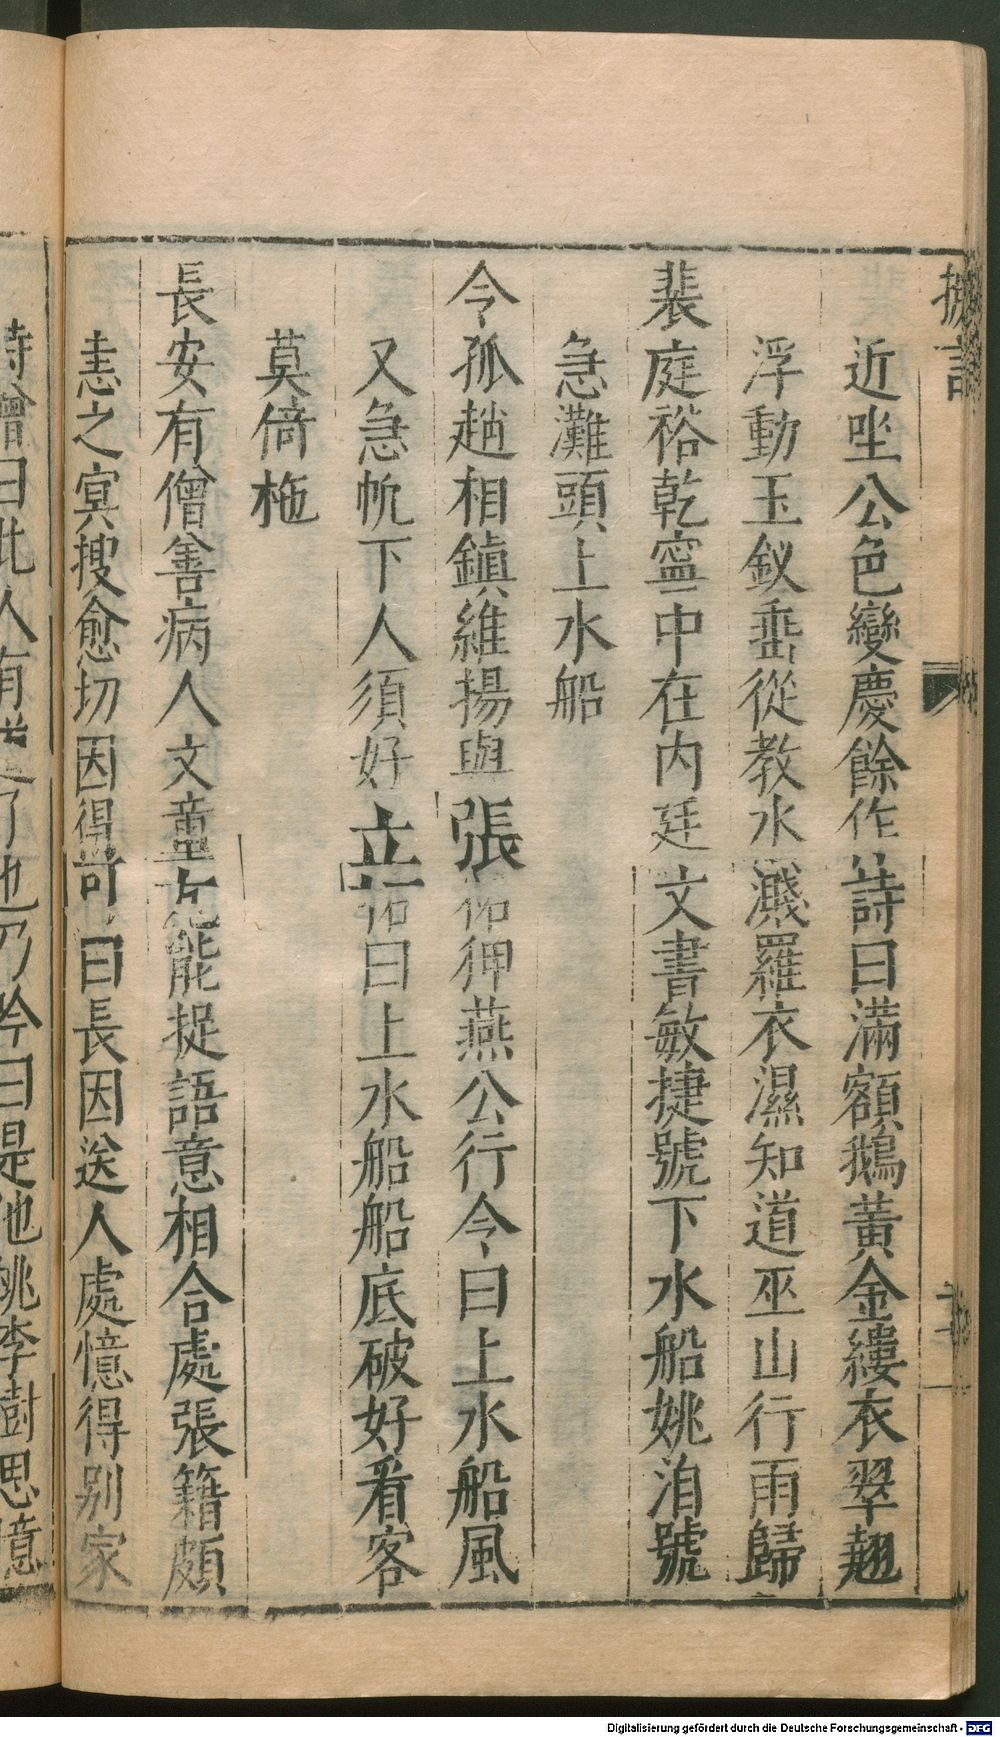 摭言
近坐公色變慶餘作詩曰滿額鵝黃金縷衣翠翹
浮動玉釵垂從教水濺羅衣濕知道巫山行雨歸
裴庭裕乾寧中在内廷文書敏捷號下水船姚洎號
急灘頭上水船
令狐趙相鎮維揚與張祜狎燕公行令曰上水船風
又急帆下人須好立祜曰上水船船底破好看客
莫倚柂
長安有僧善病人文章尤能捉語意相合處張籍頗
恚之冥搜愈切因得曰長因送人處憶得别家
時僧曰此人有道了也乃吟曰是他桃李樹思憶
Digitalisierung gefördert durch die Deutsche Forschungsgemeinschaft - DFG